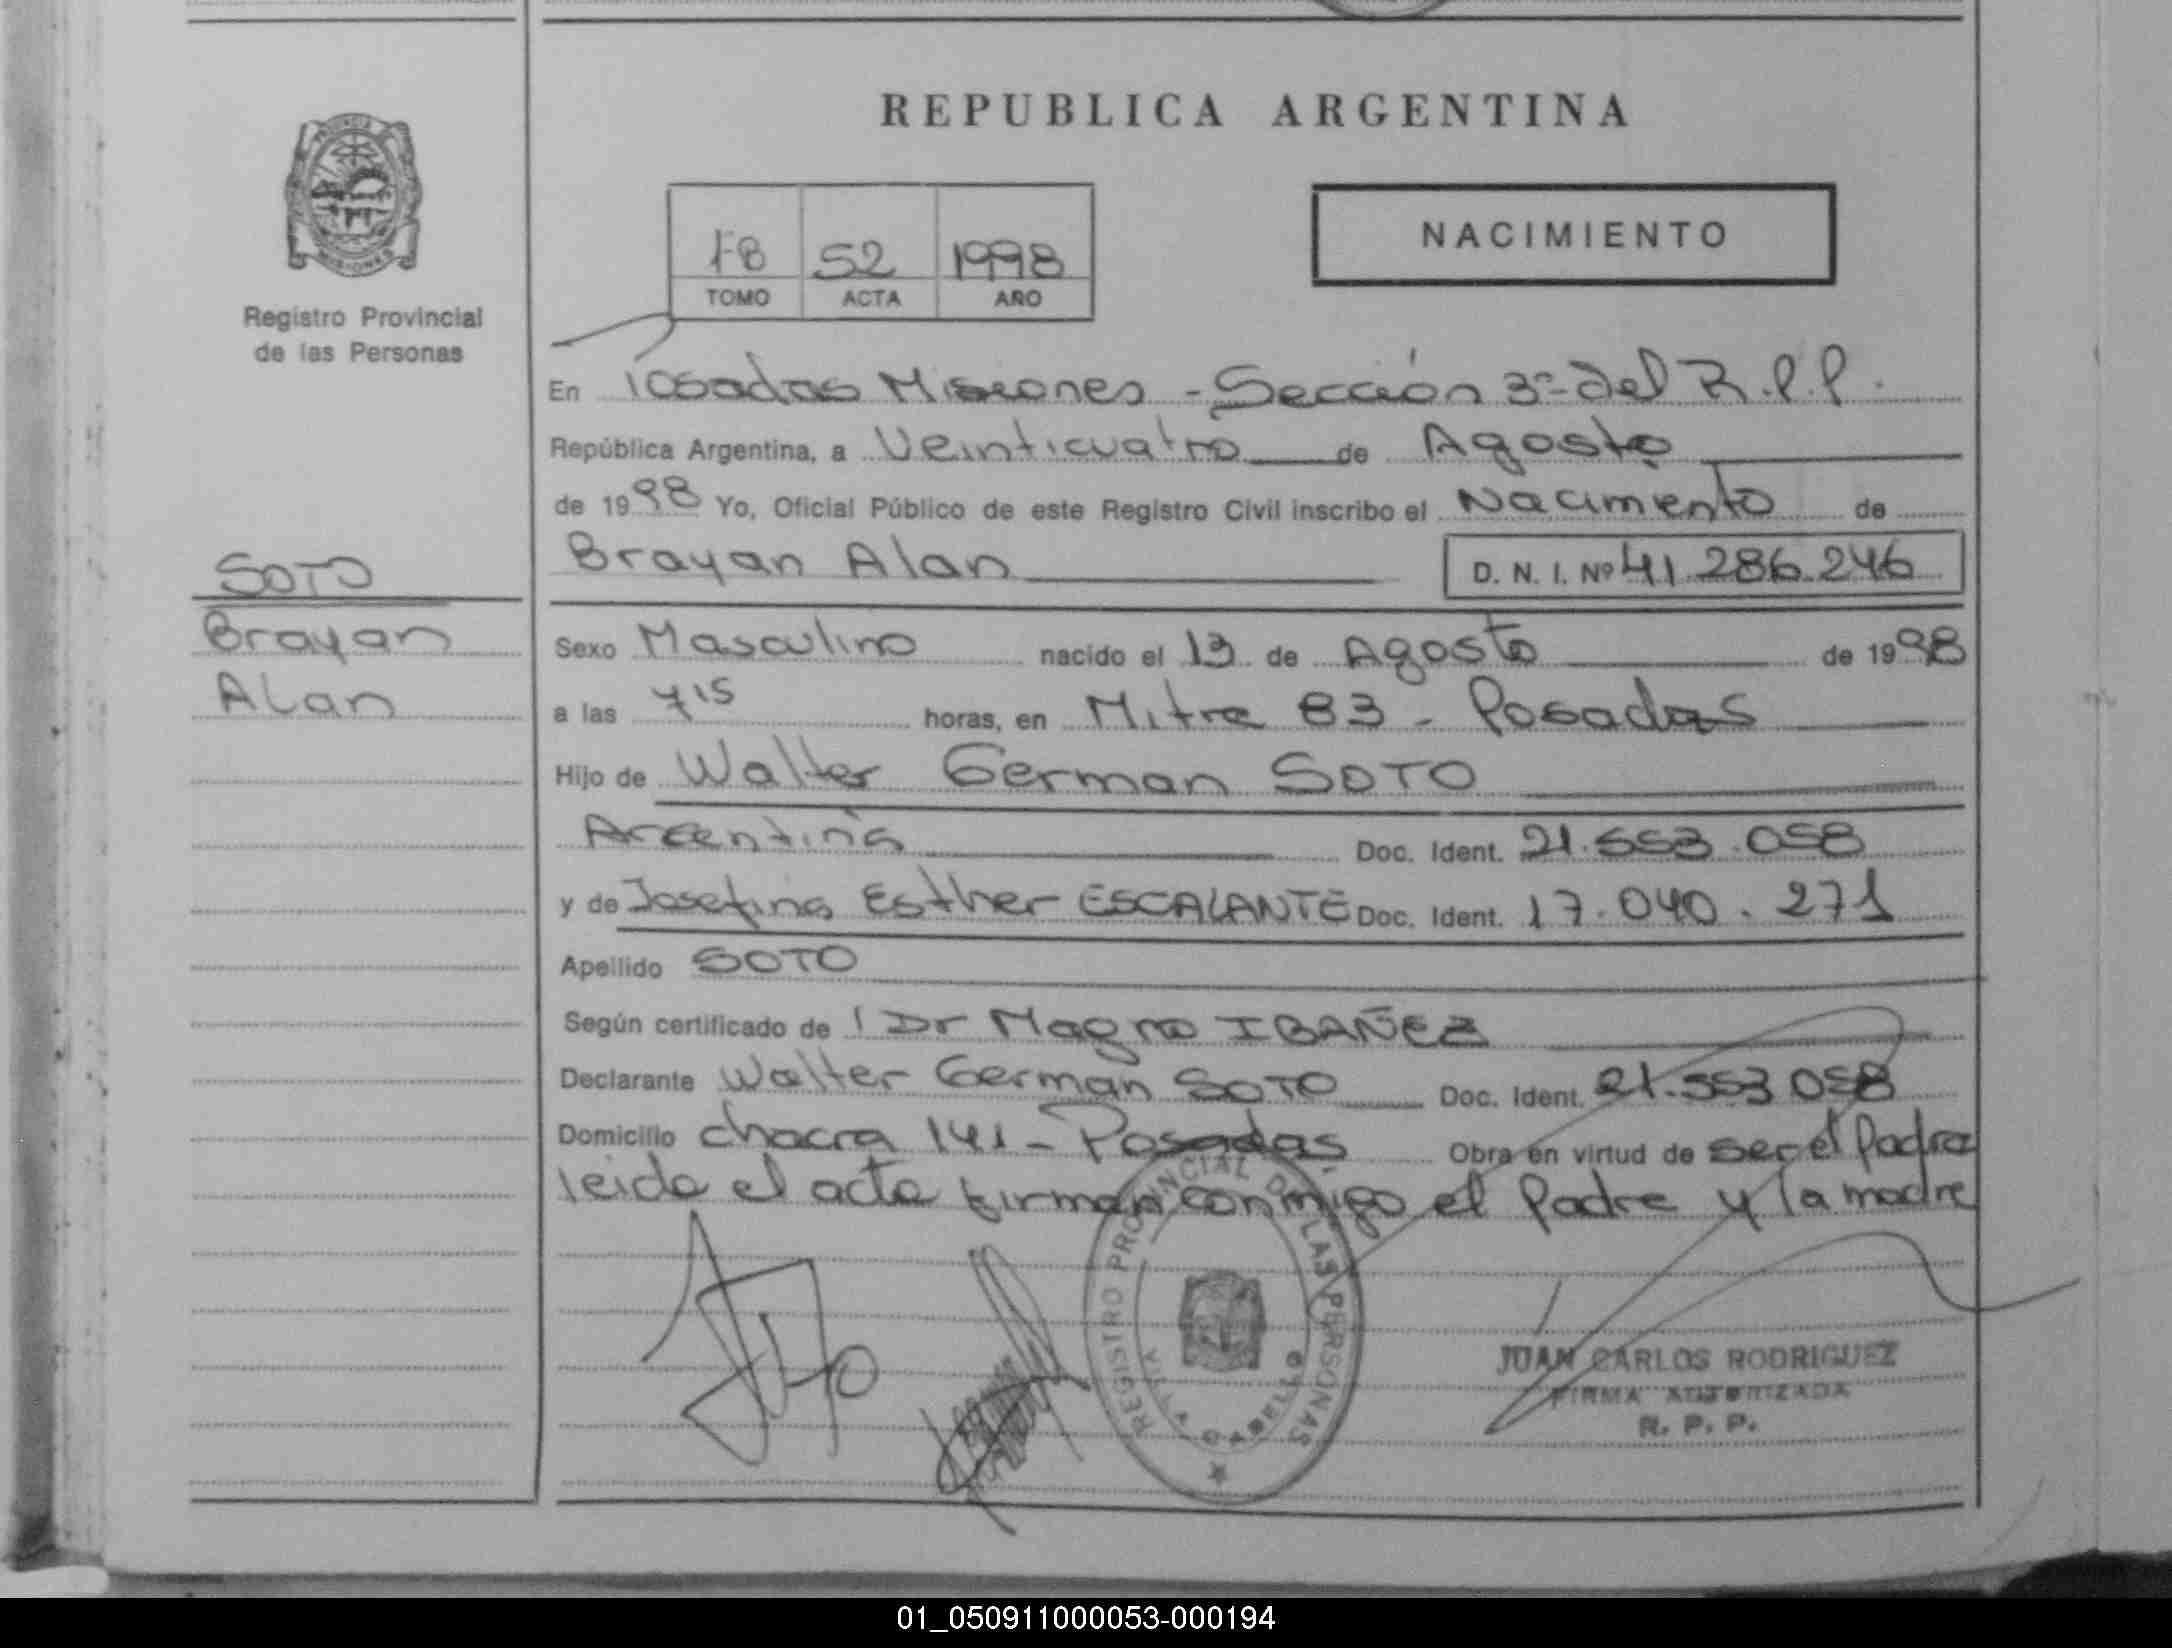 REPUBLICA ARGENTINA
PROVINCIA
MISIONES
Registro Provincial
de las Personas
NACIMIENTO
52 1998
TOMO ACTA AÑO
En Posadas Misiones - Sección 3ª del R.P.P.
República Argentina, a Veinticuatro de Agosto
de 1998 Yo, Oficial Público de este Registro Civil inscribo el Nacimiento de
Brayan Alan D. N. I. Nº 41.286.246
SOTO
Brayan
Alan
Sexo Masculino nacido el 13 de Agosto de 1998
a las 7 15 horas, en Mitre 83 - Posadas
Hijo de Walter German SOTO
Argentina Doc. Ident. 21.553.058
y de Josefina Esther ESCALANTE Doc. Ident. 17.040.271
Apellido SOTO
Según certificado de l Dr Magno IBAÑEZ
Declarante Walter German SOTO Doc. Ident. 21.553.058
Domicilio chacra 141 - Posadas Obra en virtud de ser el Padre
leida el acta firman conmigo el Padre y la madre
REGISTRO PROVINCIAL DE LAS PERSONAS
VILLA CABELLO
JUAN CARLOS RODRIGUEZ
FIRMA AUTORIZADA
R. P. P.
01_050911000053-000194